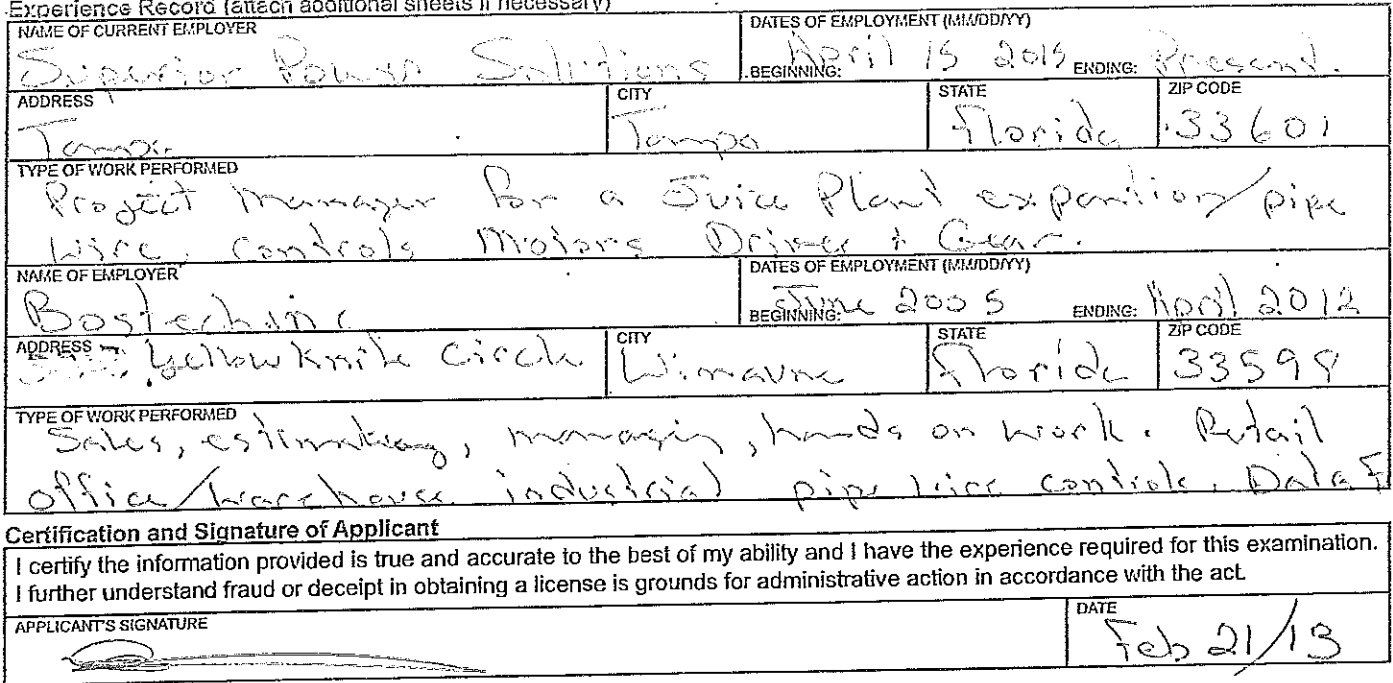 Experience Record (attach additional sheets if necessary)
NAME OF CURRENT EMPLOYER DATES OF EMPLOYMENT (MM/DD/YY)
Superior Power Solutions BEGINNING: April 15 2015 ENDING: Present.
ADDRESS CITY STATE ZIP CODE
Tampa Tampa Florida 33601
TYPE OF WORK PERFORMED
Project Manager for a Juice Plant expantion/pipe
wire, controls Motors Drives + Gear.
NAME OF EMPLOYER DATES OF EMPLOYMENT (MM/DD/YY)
Bostechinc BEGINNING: June 2005 ENDING: April 2012
ADDRESS CITY STATE ZIP CODE
Yellow Knife Circle Wimaune Florida 33598
TYPE OF WORK PERFORMED
Sales, estimating, managin, hands on work. Retail
office/warehouse industrial pipe wire controls. Data
Certification and Signature of Applicant
I certify the information provided is true and accurate to the best of my ability and I have the experience required for this examination.
I further understand fraud or deceipt in obtaining a license is grounds for administrative action in accordance with the act.
APPLICANT'S SIGNATURE DATE
Feb 21/13